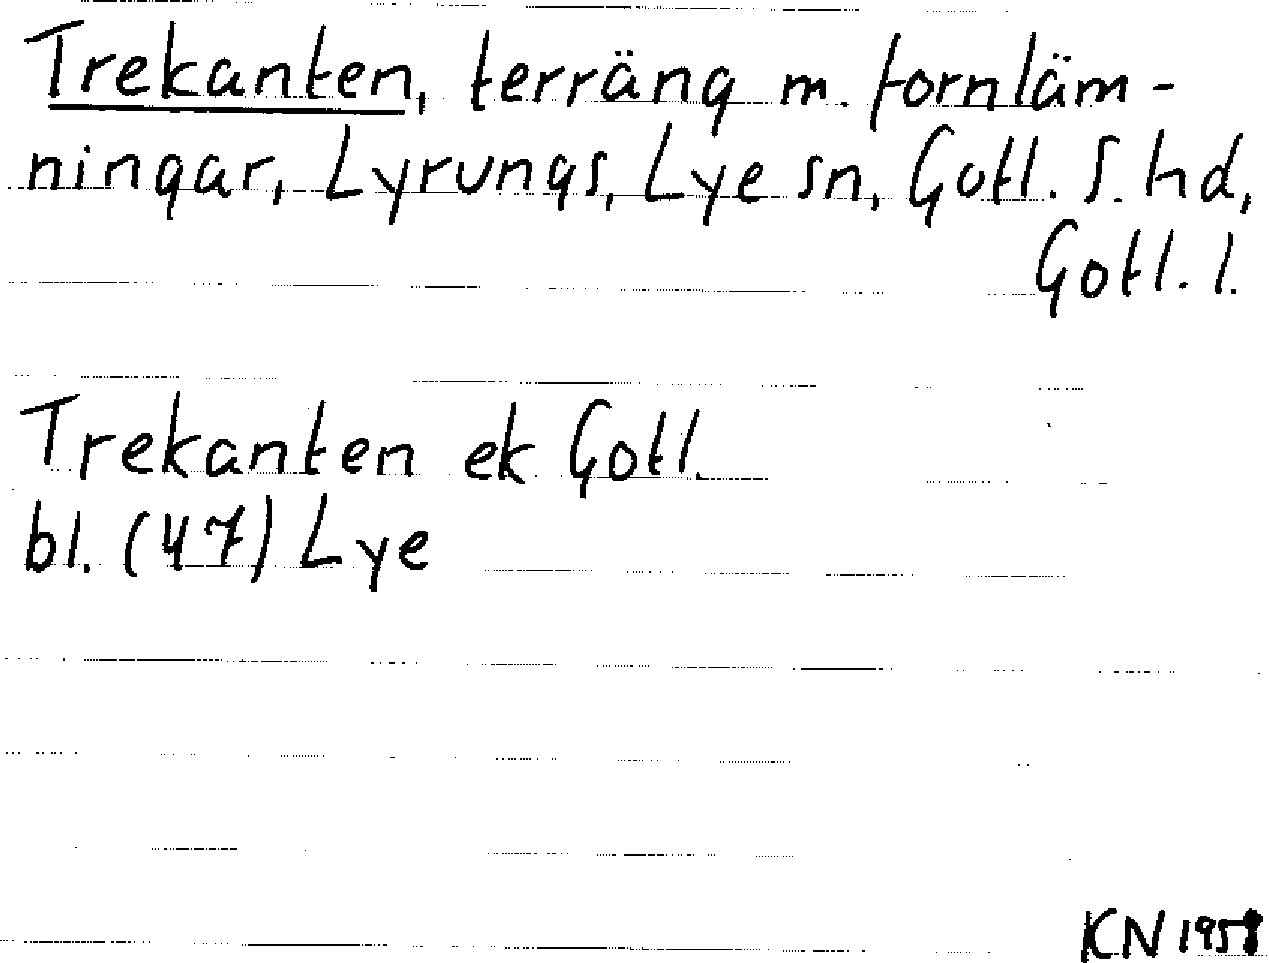 Trekanten, terräng m. fornläm-
ningar, Lyrungs, Lye sn, Gotl. S. hd,
Gotl. l.
Trekanten ek Gotl.
bl. (47) Lye
KN 1958